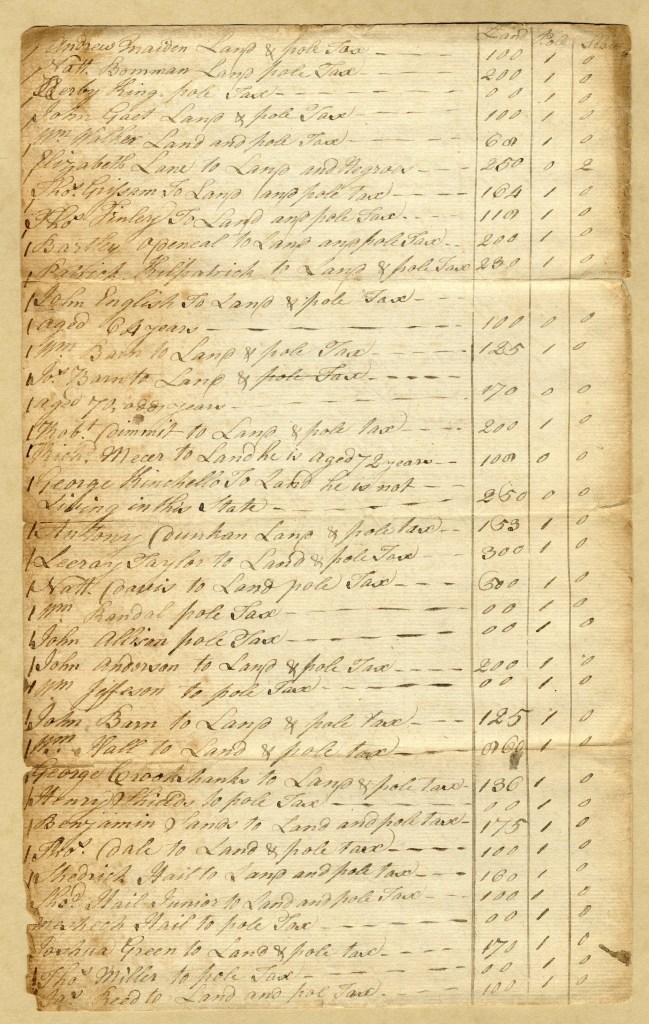 Land Pole Slaves
Andrew Maiden Land & pole Tax 100 1 0
Natt. Bowman Land pole Tax 200 1 0
Derby King pole Tax 00 1 0
John Gaet Land & pole Tax 100 1 0
Wm. Walker Land and pole Tax 60 1 0
Elizabeth Lane to Land and Negroes 250 0 2
Thos. Grissam To Land and pole tax 164 1 0
Thos Finley To Land and pole Tax 110 1 0
Bartley Openeal to Land and pole Tax 200 1 0
Patrick Kilpatrick to Land & pole Tax 230 1 0
John English To Land & pole Tax
aged 64 years 100 0 0
Wm Barn to Land & pole Tax 125 1 0
Jos. Barn to Land & pole Tax
aged 70, years 170 0 0
Robt. Cimmit to Land & pole tax 200 1 0
Richd. Mecer to Land he is aged 72 years 100 0 0
George Kinchello To Land he is not
Living in this State 260 0 0
Anthony Dunkan Land & pole tax 153 1 0
Leeray Taylor to Land & pole Tax 300 1 0
Natt. Davis to Land pole Tax 600 1 0
Wm Randal pole Tax 00 1 0
John Allison pole Tax 00 1 0
John Anderson to Land & pole Tax 200 1 0
Wm Jefferson to pole Tax 00 1 0
John Barn to Land & pole tax 125 1 0
Wm Hall to Land & pole tax 60 1 0
George Crookshanks to Land & pole tax 136 1 0
Henry Shields to pole Tax 00 1 0
Benjamin Sands to Land and pole tax 175 1 0
Thos. Dale to Land & pole tax 100 1 0
Shedrich Hail to Land and pole tax 160 1 0
Thos. Hail Junior to Land and pole Tax 100 1 0
Mesheck Hail to pole Tax 00 1 0
Joshua Green to Land & pole tax 170 1 0
Thos Miller to pole Tax 00 1 0
Jas Reed to Land and pol Tax 100 1 0